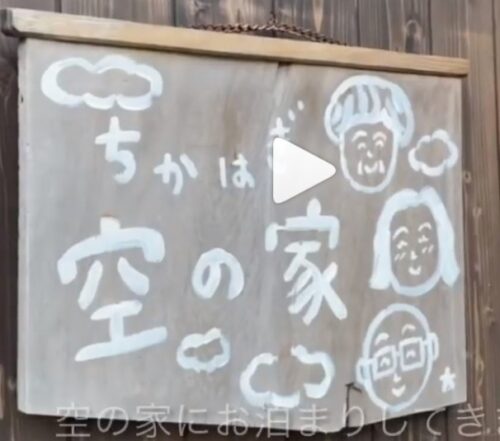 ちかは
空の家
空の家にお泊まりしてき